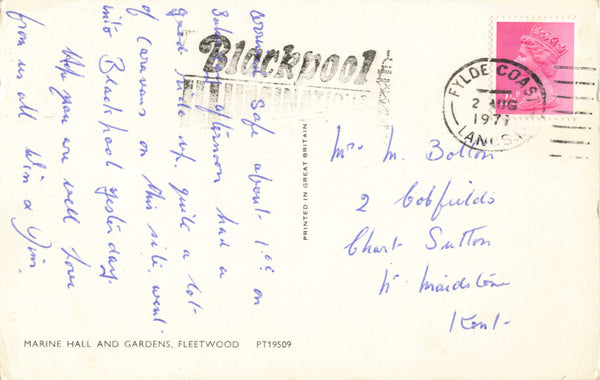 arrived Safe about 1.00 on
Saturday afternoon had a
good ride up. quite a lot
of caravans on this site. went
into Blackpool yesterday.
Hope you are well love
from us all Win & Jim
Blackpool
ILLUMINATIONS
FYLDE COAST
2 AUG
1971
LANCS.
PRINTED IN GREAT BRITAIN
Mrs M. Bolton
2 Cobfields
Chart Sutton
Nr Maidstone
Kent
MARINE HALL AND GARDENS, FLEETWOOD PT19509